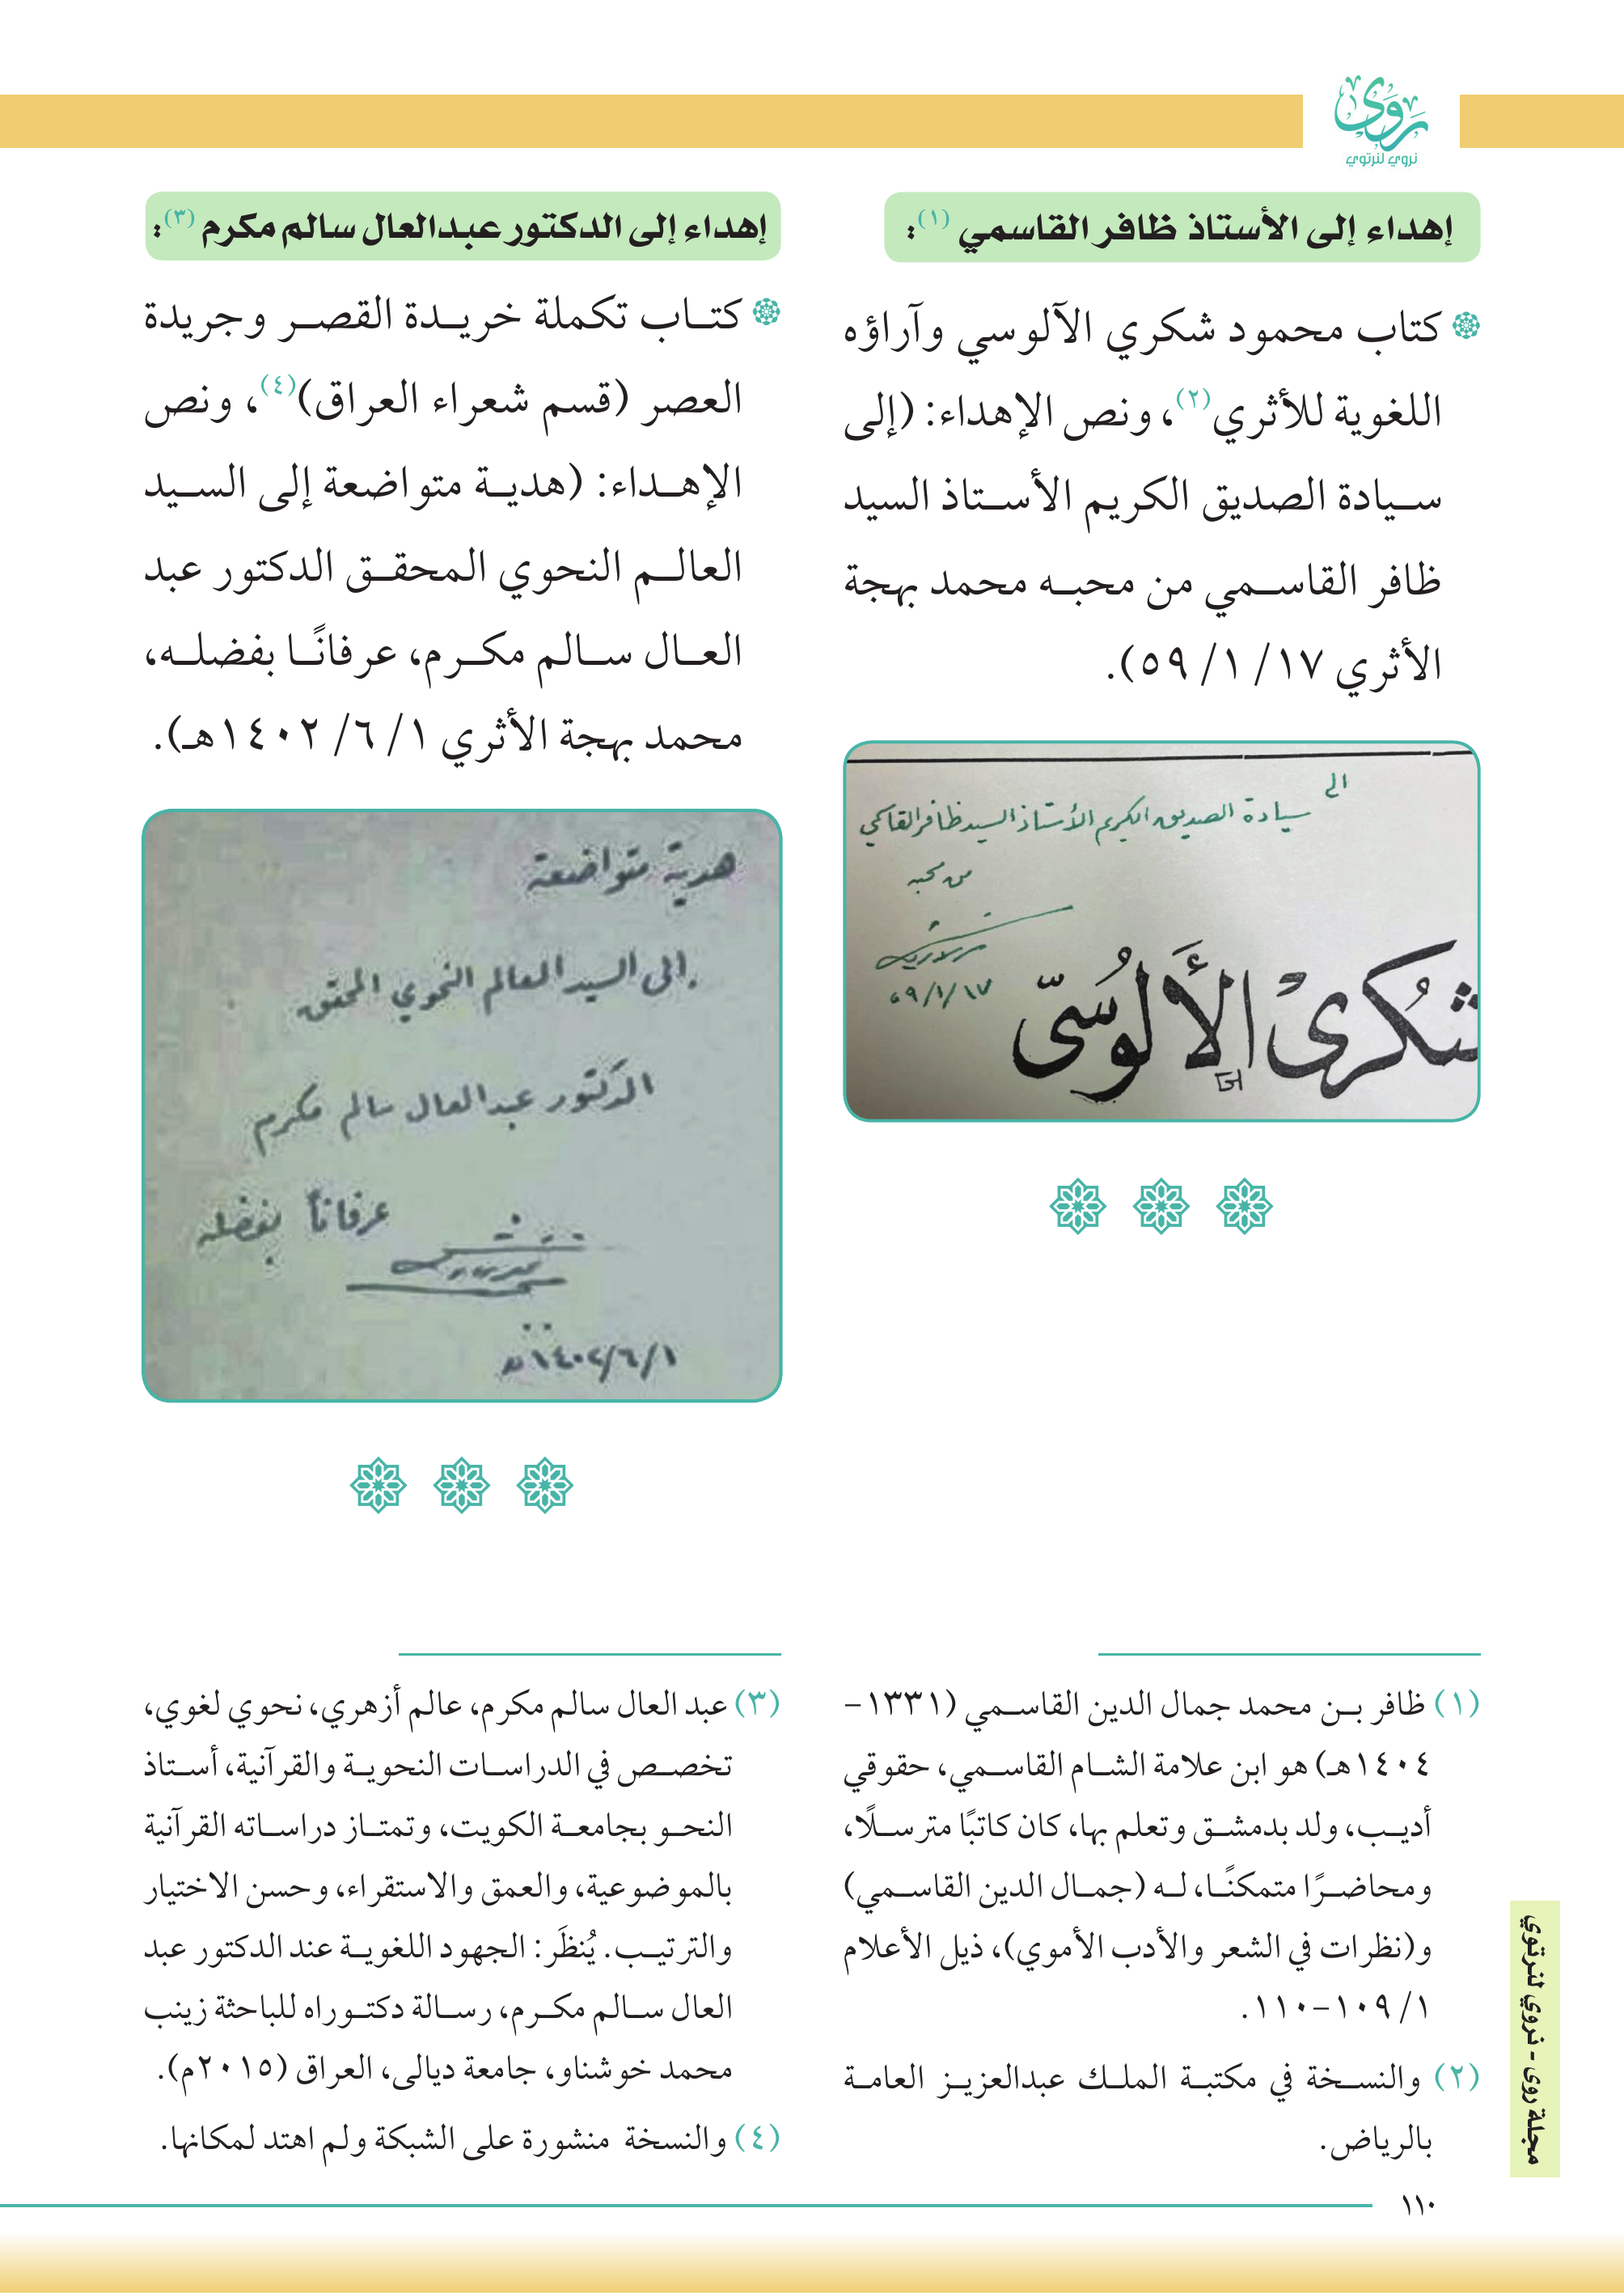 روى
نروي لنرتوي
إهداء إلى الأستاذ ظافر القاسمي (١):
كتاب محمود شكري الآلوسي وآراؤه
اللغوية للأثري(٢)، ونص الإهداء: (إلى
سيادة الصديق الكريم الأستاذ السيد
ظافر القاسمي من محبه محمد بهجة
الأثري ١٧/ ١/ ٥٩).
الى
سيادة الصديق الكريم الأستاذ السيد ظافر القاسمي
من محبه
٥٩/١/١٧
شكرى الألوسى
إهداء إلى الدكتور عبدالعال سالم مكرم (٣):
كتاب تكملة خريدة القصر وجريدة
العصر (قسم شعراء العراق)(٤)، ونص
الإهداء: (هدية متواضعة إلى السيد
العالم النحوي المحقق الدكتور عبد
العال سالم مكرم، عرفانًا بفضله،
محمد بهجة الأثري ١/ ٦/ ١٤٠٢هـ).
هدية متواضعة
الى السيد العالم النحوي المحقق
الدكتور عبد العال سالم مكرم
عرفاناً بفضله
١٤٠٢/٦/١هـ
(١) ظافر بن محمد جمال الدين القاسمي (١٣٣١-
١٤٠٤هـ) هو ابن علامة الشام القاسمي، حقوقي
أديب، ولد بدمشق وتعلم بها، كان كاتبًا مترسلًا،
ومحاضرًا متمكنًا، له (جمال الدين القاسمي)
و(نظرات في الشعر والأدب الأموي)، ذيل الأعلام
١/ ١٠٩-١١٠.
(٢) والنسخة في مكتبة الملك عبدالعزيز العامة
بالرياض.
(٣) عبد العال سالم مكرم، عالم أزهري، نحوي لغوي،
تخصص في الدراسات النحوية والقرآنية، أستاذ
النحو بجامعة الكويت، وتمتاز دراساته القرآنية
بالموضوعية، والعمق والاستقراء، وحسن الاختيار
والترتيب. يُنظَر: الجهود اللغوية عند الدكتور عبد
العال سالم مكرم، رسالة دكتوراه للباحثة زينب
محمد خوشناو، جامعة ديالى، العراق (٢٠١٥م).
(٤) والنسخة منشورة على الشبكة ولم اهتد لمكانها.
مجلة روى - نروي لنرتوي
١١٠